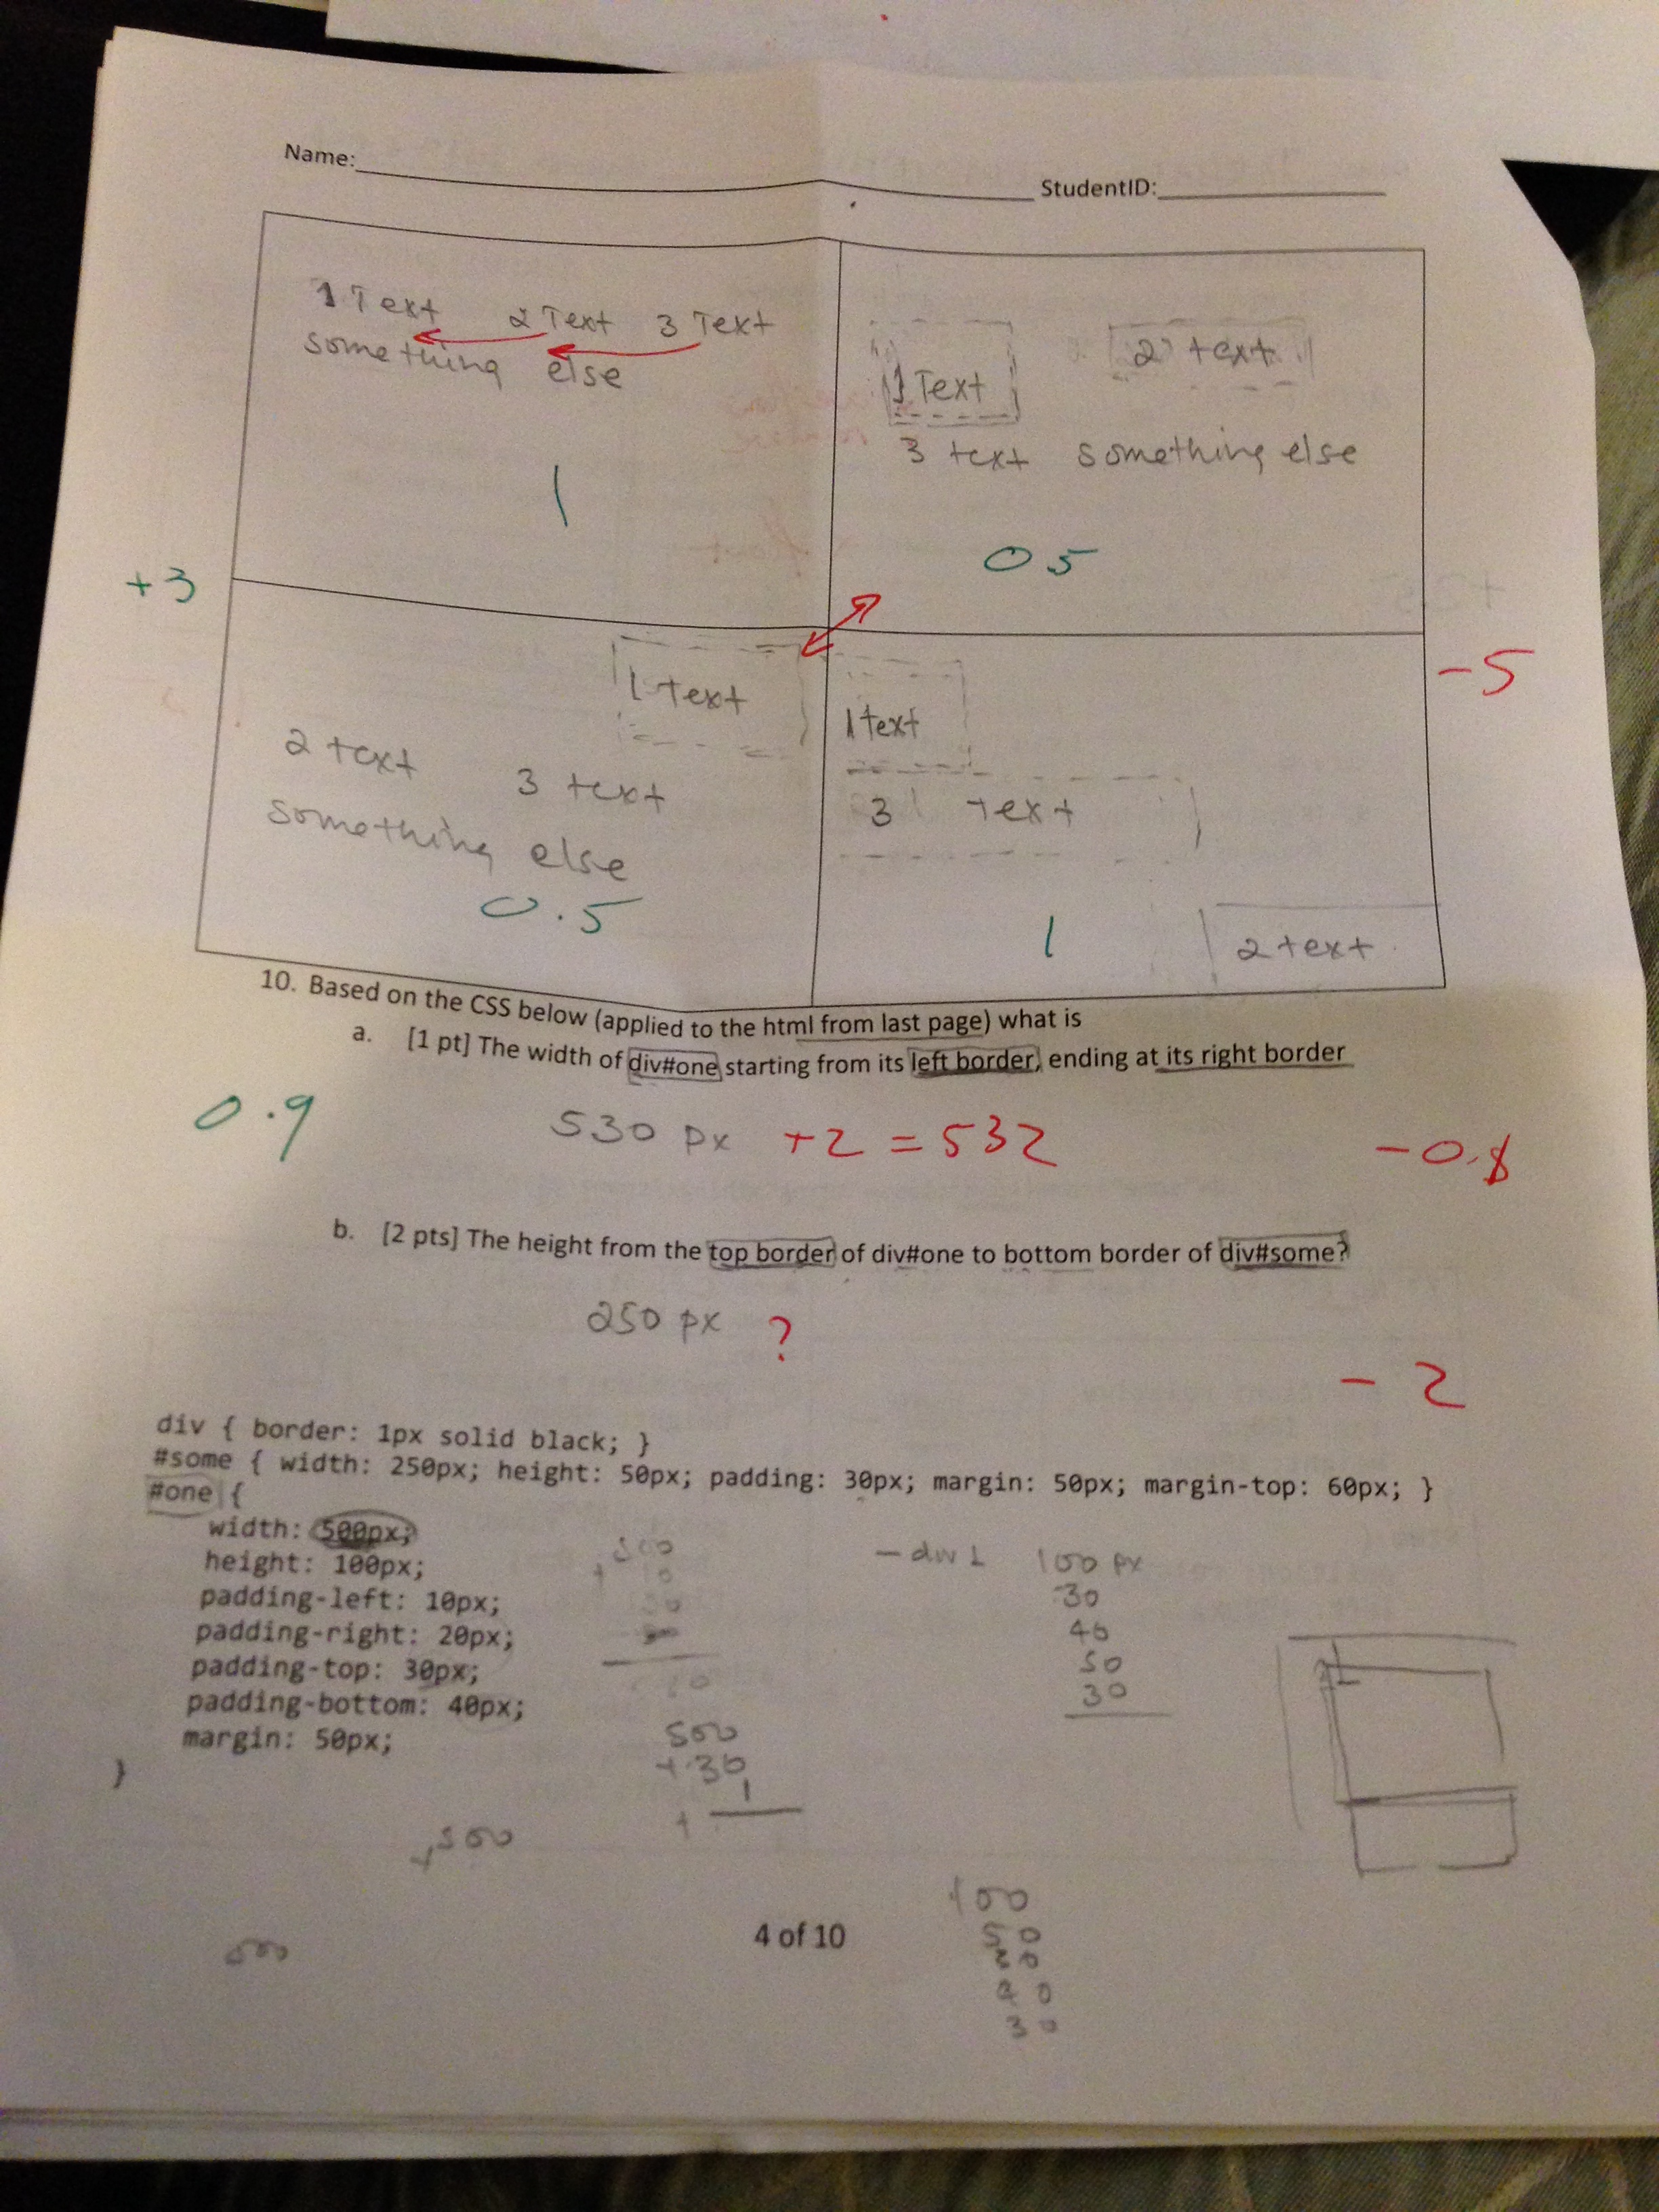 Name:
StudentID:
1 Text 2 Text 3 Text
something else
1
1 Text
2 text
3 text something else
0 5
+3
-5
1 text
2 text 3 text
something else
0.5
1 text
3 text
1
2 text
10. Based on the CSS below (applied to the html from last page) what is
a. [1 pt] The width of div#one starting from its left border, ending at its right border
0.9
530 px +2 = 532
b. [2 pts] The height from the top border of div#one to bottom border of div#some?
250 px ?
- 2
div { border: 1px solid black; }
#some { width: 250px; height: 50px; padding: 30px; margin: 50px; margin-top: 60px; }
#one {
width: 500px;
height: 100px;
padding-left: 10px;
padding-right: 20px;
padding-top: 30px;
padding-bottom: 40px;
margin: 50px;
}
- div 1 100 px
30
40
50
30
500
+ 30
1
+
+500
4 of 10
100
50
40
30